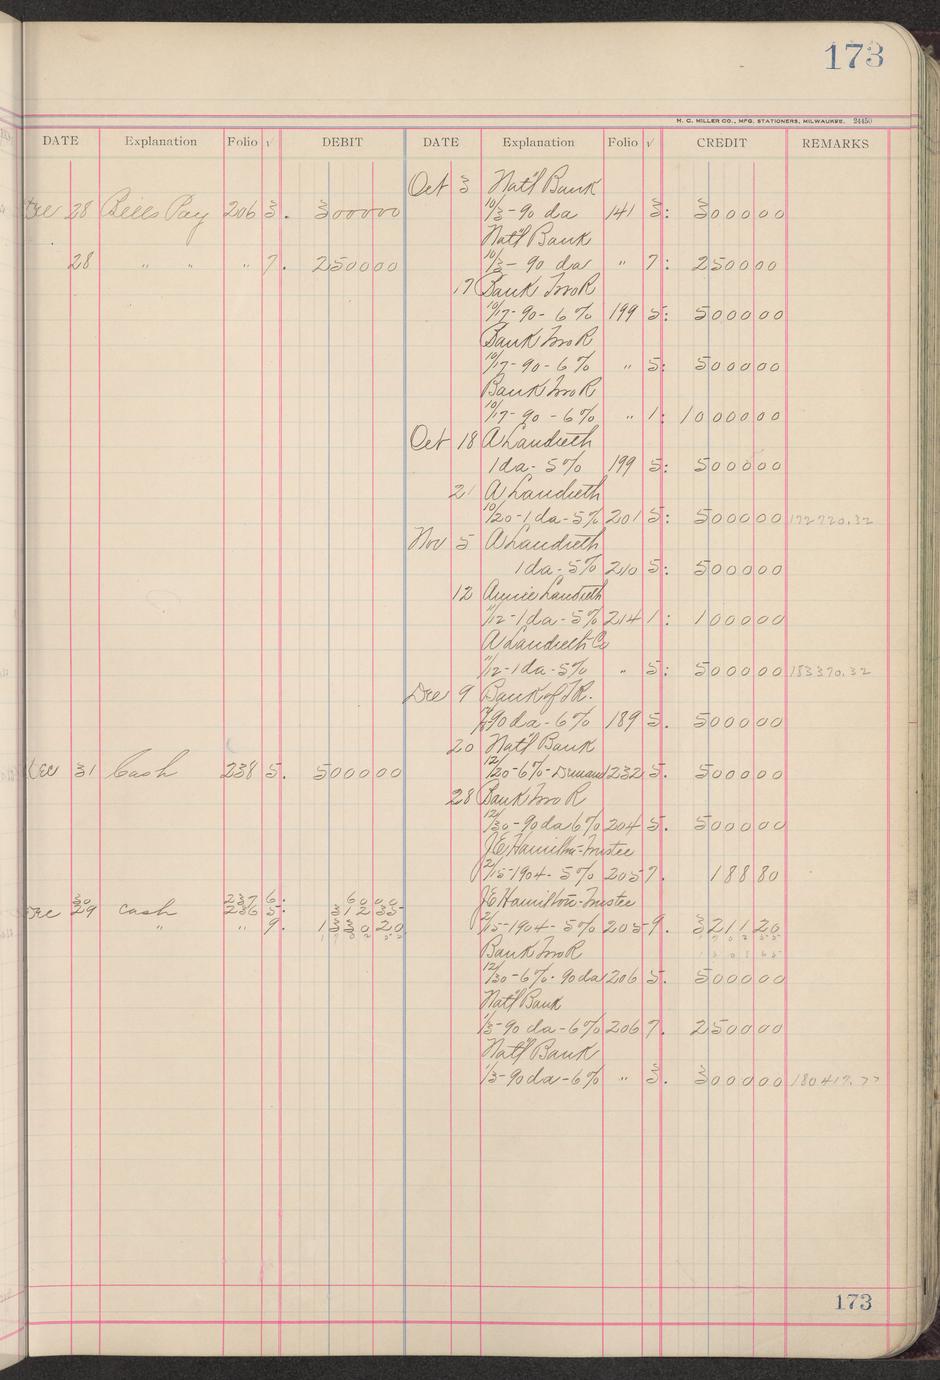 173
H. C. MILLER CO., MFG. STATIONERS, MILWAUKEE. 24450
DATE Explanation Folio √ DEBIT DATE Explanation Folio √ CREDIT REMARKS
Oct 3 Nat'l Bank
Dec 28 Bills Pay 206 3. 300000 10/3-90 da 141 3: 300000
Nat'l Bank
28 " " " 7. 250000 10/3-90 da " 7: 250000
17 Bank Two R
10/17-90-6% 199 5: 500000
Bank Two R
10/17-90-6% " 5: 500000
Bank Two R
10/17-90-6% " 1: 1000000
Oct 18 A Landreth
1 da-5% 199 5: 500000
21 A Landreth
10/20-1 da-5% 201 5: 500000 172720.32
Nov 5 A Landreth
1 da-5% 210 5: 500000
12 Annie Landreth
11/12-1 da-5% 214 1: 100000
A Landreth Co
11/12-1 da-5% " 5: 500000 183370.32
Dec 9 Bank of T.R.
90 da-6% 189 5. 500000
20 Nat'l Bank
Dec 31 Cash 238 5. 500000 12/20-6%-Demand 232 5. 500000
28 Bank Two R
12/30-90 da 6% 204 5. 500000
J E Hamilton-Trustee
2/15-1904-5% 205 7. 18880
30 237 6: 6000 J E Hamilton-Trustee
Dec 29 Cash 236 5: 31235
" " 9. 133020 2/15-1904-5% 205 9. 321120
Bank Two R
12/30-6%-90 da 206 5. 500000
Nat'l Bank
1/3-90 da-6% 206 7. 250000
Nat'l Bank
1/3-90 da-6% " 3. 300000 180417.77
173